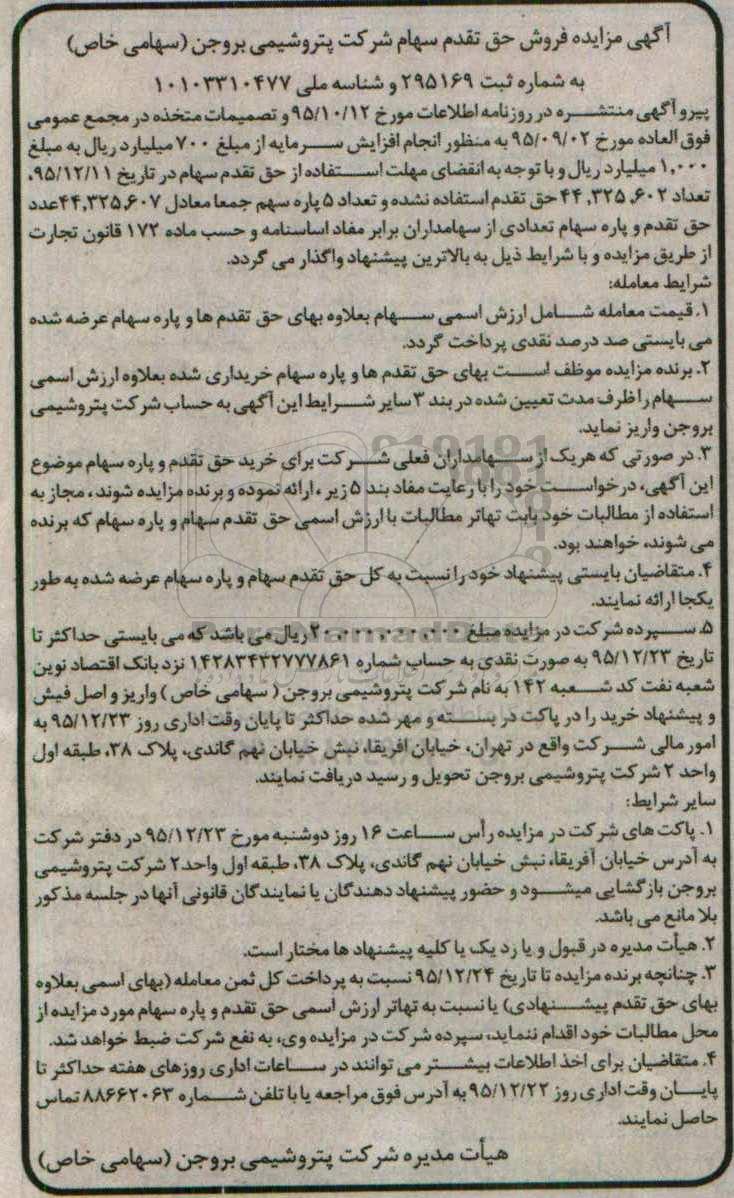 آگهی مزایده فروش حق تقدم سهام شرکت پتروشیمی بروجن (سهامی خاص)
به شماره ثبت ۲۹۵۱۶۹ و شناسه ملی ۱۰۱۰۳۳۱۰۴۷۷
پیرو آگهی منتشره در روزنامه اطلاعات مورخ ۹۵/۱۰/۱۲ و تصمیمات متخذه در مجمع عمومی
فوق العاده مورخ ۹۵/۰۹/۰۲ به منظور انجام افزایش سرمایه از مبلغ ۷۰۰ میلیارد ریال به مبلغ
۱,۰۰۰ میلیارد ریال و با توجه به انقضای مهلت استفاده از حق تقدم سهام در تاریخ ۹۵/۱۲/۱۱،
تعداد ۴۴,۳۲۵,۶۰۲ حق تقدم استفاده نشده و تعداد ۵ پاره سهم جمعا معادل ۴۴,۳۲۵,۶۰۷ عدد
حق تقدم و پاره سهام تعدادی از سهامداران برابر مفاد اساسنامه و حسب ماده ۱۷۲ قانون تجارت
از طریق مزایده و با شرایط ذیل به بالاترین پیشنهاد واگذار می گردد.
شرایط معامله:
۱. قیمت معامله شامل ارزش اسمی سهام بعلاوه بهای حق تقدم ها و پاره سهام عرضه شده
می بایستی صد درصد نقدی پرداخت گردد.
۲. برنده مزایده موظف است بهای حق تقدم ها و پاره سهام خریداری شده بعلاوه ارزش اسمی
سهام را ظرف مدت تعیین شده در بند ۳ سایر شرایط این آگهی به حساب شرکت پتروشیمی
بروجن واریز نماید.
۳. در صورتی که هریک از سهامداران فعلی شرکت برای خرید حق تقدم و پاره سهام موضوع
این آگهی، درخواست خود را با رعایت مفاد بند ۵ زیر ، ارائه نموده و برنده مزایده شوند ، مجاز به
استفاده از مطالبات خود بابت تهاتر مطالبات با ارزش اسمی حق تقدم سهام و پاره سهام که برنده
می شوند، خواهند بود.
۴. متقاضیان بایستی پیشنهاد خود را نسبت به کل حق تقدم سهام و پاره سهام عرضه شده به طور
یکجا ارائه نمایند.
۵. سپرده شرکت در مزایده مبلغ ۲۰,۰۰۰,۰۰۰,۰۰۰ ریال می باشد که می بایستی حداکثر تا
تاریخ ۹۵/۱۲/۲۳ به صورت نقدی به حساب شماره ۱۴۲۸۳۴۳۲۷۷۷۸۶۱ نزد بانک اقتصاد نوین
شعبه نفت کد شعبه ۱۴۲ به نام شرکت پتروشیمی بروجن ( سهامی خاص ) واریز و اصل فیش
و پیشنهاد خرید را در پاکت در بسته و مهر شده حداکثر تا پایان وقت اداری روز ۹۵/۱۲/۲۳ به
امور مالی شرکت واقع در تهران، خیابان افریقا، نبش خیابان نهم گاندی، پلاک ۳۸، طبقه اول
واحد ۲ شرکت پتروشیمی بروجن تحویل و رسید دریافت نمایند.
سایر شرایط:
۱. پاکت های شرکت در مزایده رأس ساعت ۱۶ روز دوشنبه مورخ ۹۵/۱۲/۲۳ در دفتر شرکت
به آدرس خیابان آفریقا، نبش خیابان نهم گاندی، پلاک ۳۸، طبقه اول واحد۲ شرکت پتروشیمی
بروجن بازگشایی میشود و حضور پیشنهاد دهندگان یا نمایندگان قانونی آنها در جلسه مذکور
بلا مانع می باشد.
۲. هیأت مدیره در قبول و یا رد یک یا کلیه پیشنهاد ها مختار است.
۳. چنانچه برنده مزایده تا تاریخ ۹۵/۱۲/۲۴ نسبت به پرداخت کل ثمن معامله (بهای اسمی بعلاوه
بهای حق تقدم پیشنهادی) یا نسبت به تهاتر ارزش اسمی حق تقدم و پاره سهام مورد مزایده از
محل مطالبات خود اقدام ننماید، سپرده شرکت در مزایده وی، به نفع شرکت ضبط خواهد شد.
۴. متقاضیان برای اخذ اطلاعات بیشتر می توانند در ساعات اداری روزهای هفته حداکثر تا
پایان وقت اداری روز ۹۵/۱۲/۲۲ به آدرس فوق مراجعه یا با تلفن شماره ۸۸۶۶۲۰۶۳ تماس
حاصل نمایند.
هیأت مدیره شرکت پتروشیمی بروجن (سهامی خاص)